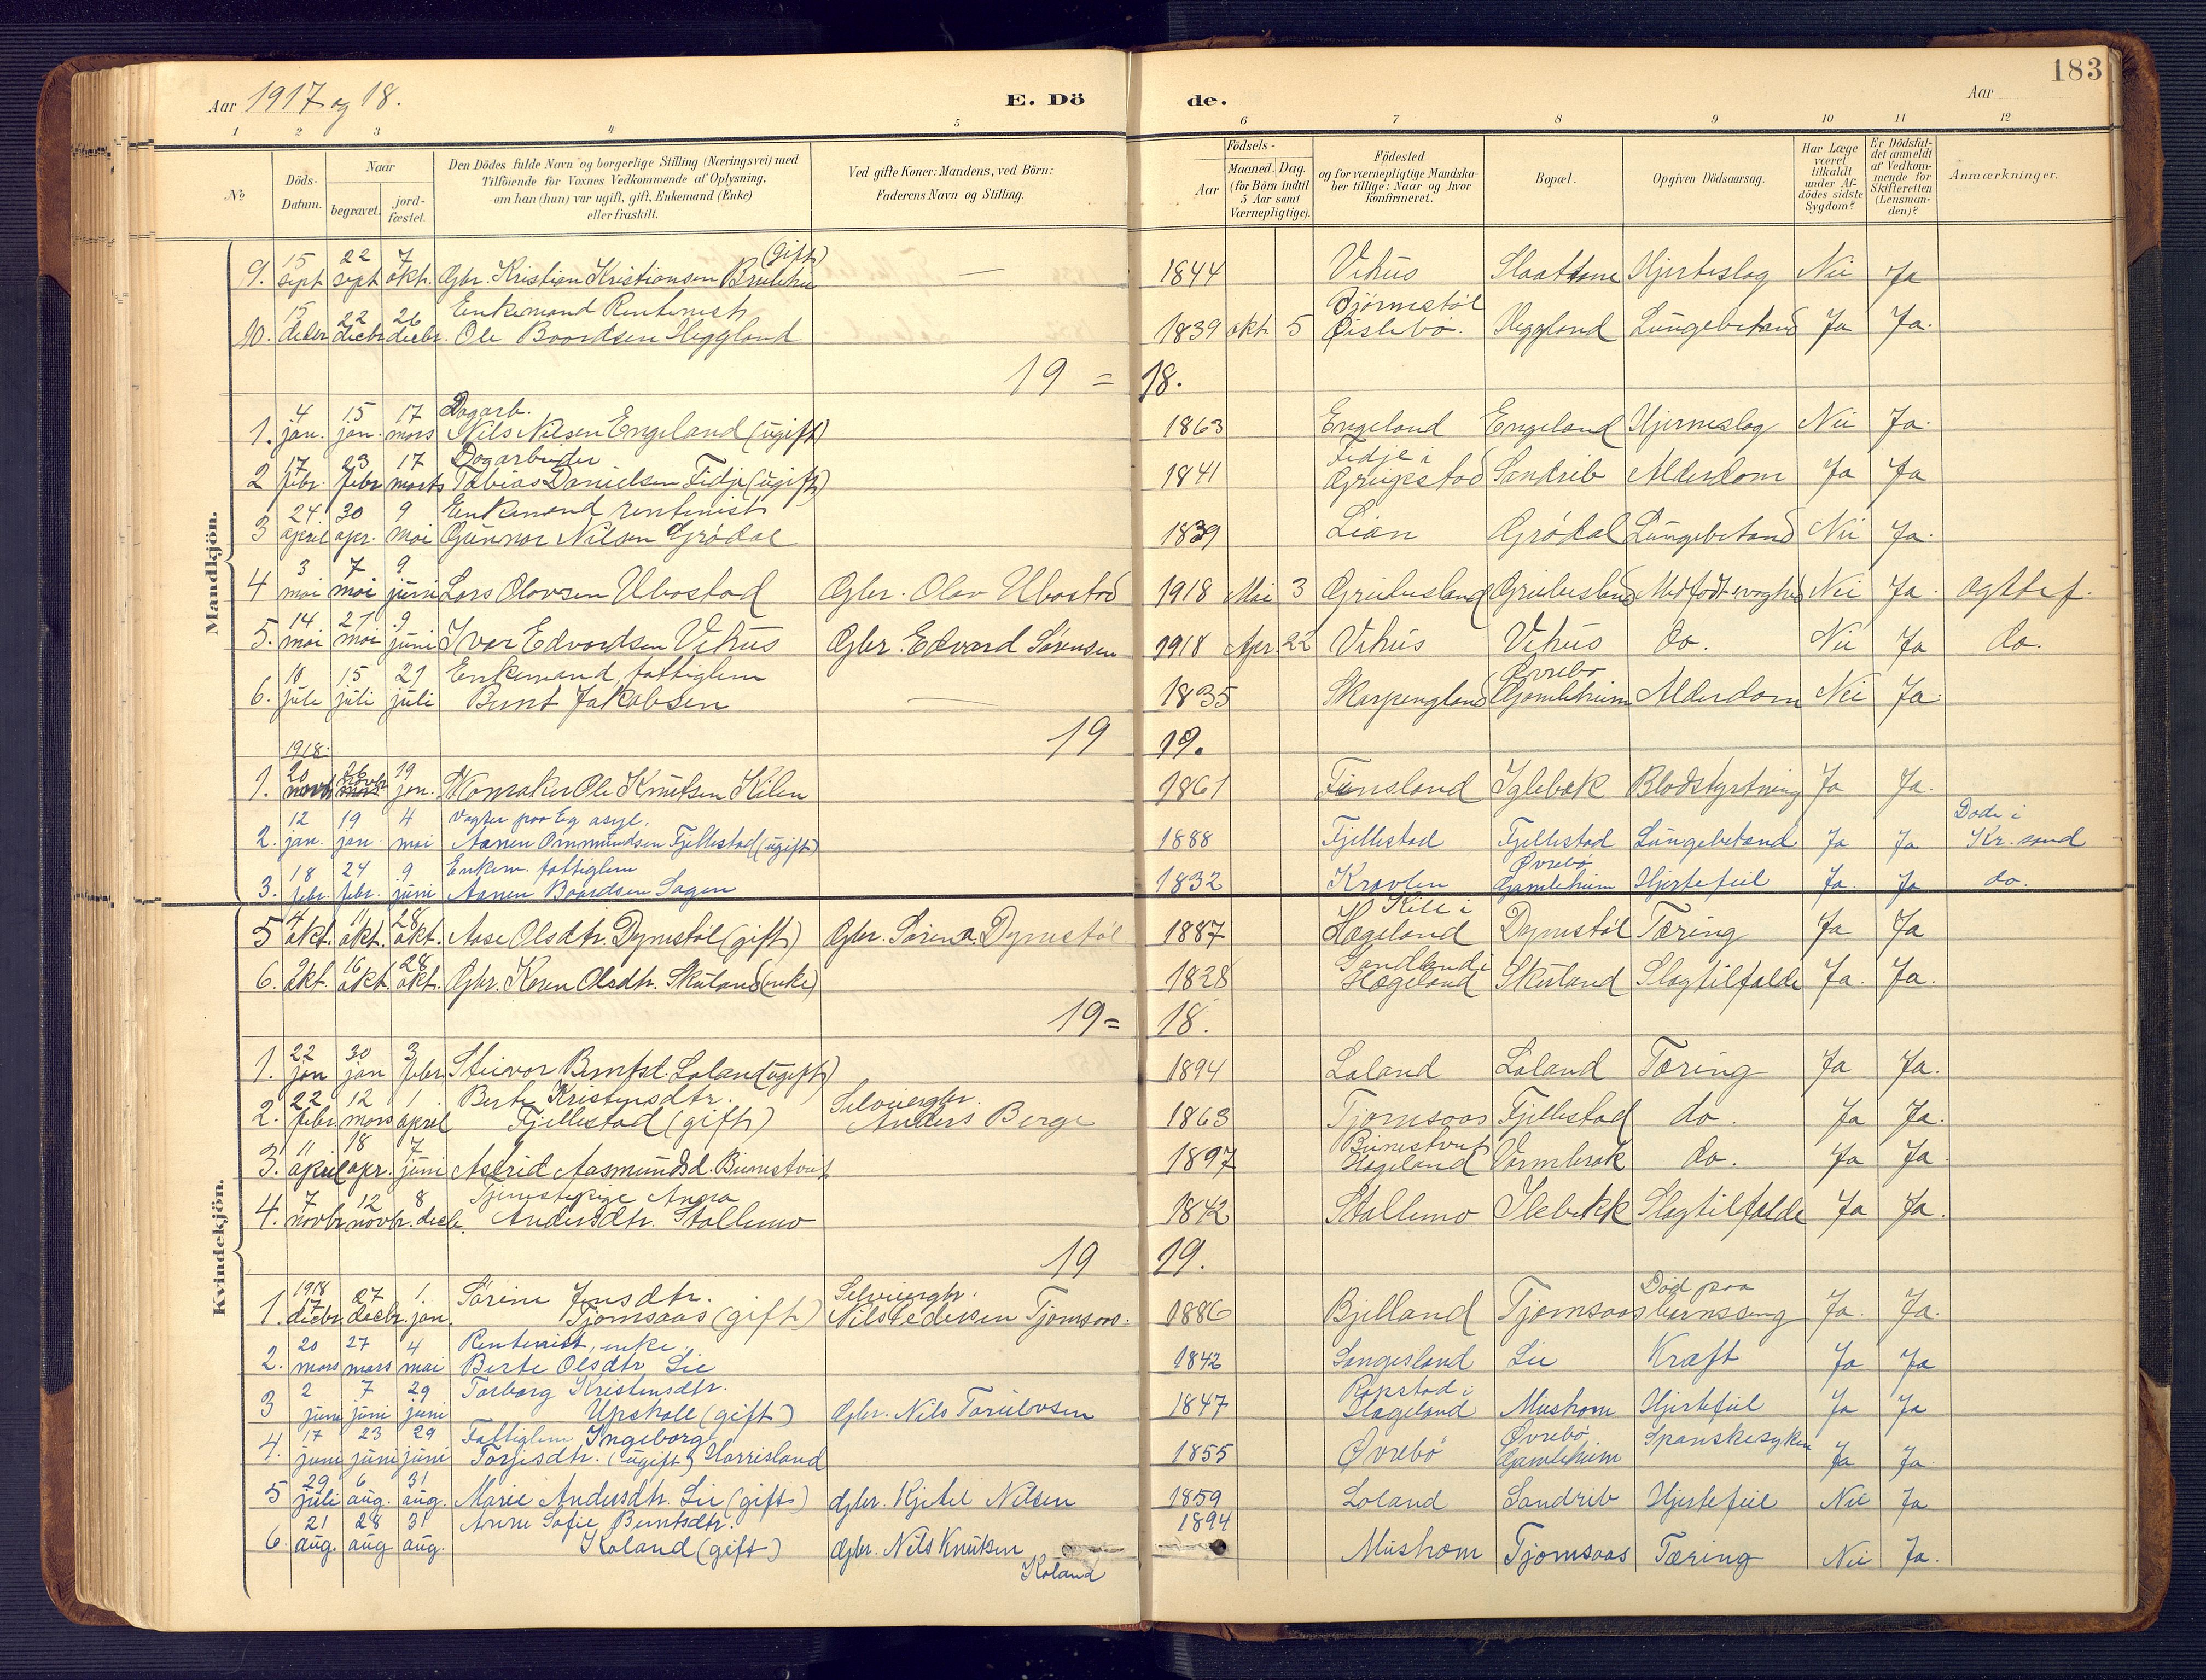 183
Aar 1917 og 18.
E. Dö de.
Aar
1 2 3 4 5 6 7 8 9 10 11 12
No
Döds-Datum.
Naar
begravet.
jord-fæstet.
Den Dödes fulde Navn og borgerlige Stilling (Næringsvei) med
Tilföiende for Voxnes Vedkommende af Oplysning,
om han (hun) var ugift, gift, Enkemand (Enke)
eller fraskilt.
Ved gifte Koner: Mandens, ved Börn:
Faderens Navn og Stilling.
Födsels-
Aar
Maaned. Dag.
(for Börn indtil
5 Aar samt
Værnepligtige).
Födested
og for værnepligtige Mandska-
ber tillige: Naar og hvor
konfirmeret.
Bopæl.
Opgiven Dödsaarsag.
Har Læge
været
tilkaldt
under Af-
dödes sidste
Sygdom?
Er Dödsfal-
det anmeldt
af Vedkom-
mende for
Skifteretten
(Lensman-
den)?
Anmærkninger.
Mandkjön.
9. 15 sept 22 sept 7 okt. Gbr. Kristian Kristiansen (gift) — 1844 Vehus Slaattene Hjerteslag Nei Ja
10. 15 decbr 22 decbr 26 decbr. Enkemand Rentenist Ole Baardsen Heggland 1839 okt. 5 Øislebø. Heggland Lungebetend Ja Ja.
19 = 18.
1. 4 jan. 15 jan. 17 mars Dagarb. Nils Nilsen Engeland (ugift) 1863 Engeland Engeland Hjerneslag Nei Ja.
2 17 febr. 23 febr 17 marts Dagarbeider Tobias Danielsen Fidje (ugift) 1841 Fidje i Greipstad Sandrib Alderdom Ja Ja
3 24 april 30 apr. 9 mai Enkemand rentenist Gunnar Nilsen Grødal 1839 Lian Grødal Lungebetend Nei Ja.
4 3 mai 7 mai 9 juni Lars Olavsen Ubostad Gbr. Olav Ubostad 1918 Mai 3 Greibesland Greibesland Medfødt svaghed Nei Ja. Ægtef.
5. 14 mai 21 mai 9 juni Ivar Edvardsen Vehus Gbr. Edvard Sørensen 1918 Apr. 22 Vehus Vehus do. Nei Ja do.
6. 10 juli 15 juli 21 juli Enkemand, fattiglem Bernt Jakobsen — 1835 Skarpengland Øvrebø Gamlehiem Alderdom Nei Ja.
19 19.
1918.
1. 20 novbr 26 novbr 19 jan. Ole Knutsen Kilen 1861 Finsland Iglebæk Blodstyrtning Ja Ja.
2. 12 jan. 19 jan. 4 mai Vagter paa Eg asyl. Aanen Ommundsen Fjellestad (ugift) 1888 Fjellestad Fjellestad Lungebetend Ja Ja Døde i Kr. sand
3. 18 febr. 24 febr. 9 juni Enkem. fattiglem Aanen Baardsen Sagen 1832 Kravlen Øvrebø Gamlehiem Hjertefeil Ja. Ja do.
Kvindekjön.
5 4 okt. 11 okt. 28 okt. Aase Olsdtr. Dynestøl (gift) Gbr. Søren A. Dynestøl 1887 Kile i Hægeland Dynestøl Tæring Ja Ja
6. 9 okt. 16 okt. 28 okt. Gbr. Karen Olsdtr. Skuland (enke) 1828 Hægeland Skuland Slagtilfælde Ja. Ja.
19 = 18.
1. 22 jan 30 jan 3 febr. Steivor Berntsd. Løland (ugift) 1894 Løland Løland Tæring Ja Ja.
2. 22 febr. 12 mars 1. april Berte Kristensdtr. Fjellestad (gift) Selveiergbr. Anders Berge 1863 Tjomsaas Fjellestad do. Ja Ja.
3. 11 april 18 apr. 7 juni Astrid Aasmundsd. 1897 Hægeland Varmbræk do. Ja Ja
4. 7 novbr 12 novbr. 8 decb. Tjenestepige Anna Andersdtr. Stallemo 1842 Stallemo Ilebekk Slagtilfælde Ja Ja.
19 19.
1. 1918 17 decbr. 27 decbr. 1. jan. Sørine Jensdtr. Tjomsaas (gift) Selveiergbr. Nils Pedersen Tjomsaas. 1886 Bjelland Tjomsaas Død paa barnseng Ja. Ja.
2. 20 mars 27 mars 4 mai Rentenist, enke. Berte Olsdtr Lie 1842 Sangesland Lie Kræft Ja Ja
3 2 juni 7 juni 29 juni Torborg Kristensdtr. Upskall (gift) Gbr. Nils Torulvsen 1847 Røpstad i Hægeland Mushom Hjertefeil Ja Ja
4. 17 juni 23 juni 29 juni Fattiglem Ingeborg Torjisdtr. (ugift) Harrisland 1855 Øvrebø Øvrebø Gamlehiem Spanskesyken Ja Ja.
5 29 juli 6 aug. 31 aug. Marie Andersdtr. Lie (gift) Gbr. Kjetel Nilsen 1859 Løland Sandrib Hjertefeil Nei Ja
6. 21 aug. 28 aug 31 aug. Anne Sofie Berntsdtr. Køland (gift) Gbr. Nils Knutsen Køland 1894 Mushom Tjomsaas Tæring Nei Ja.